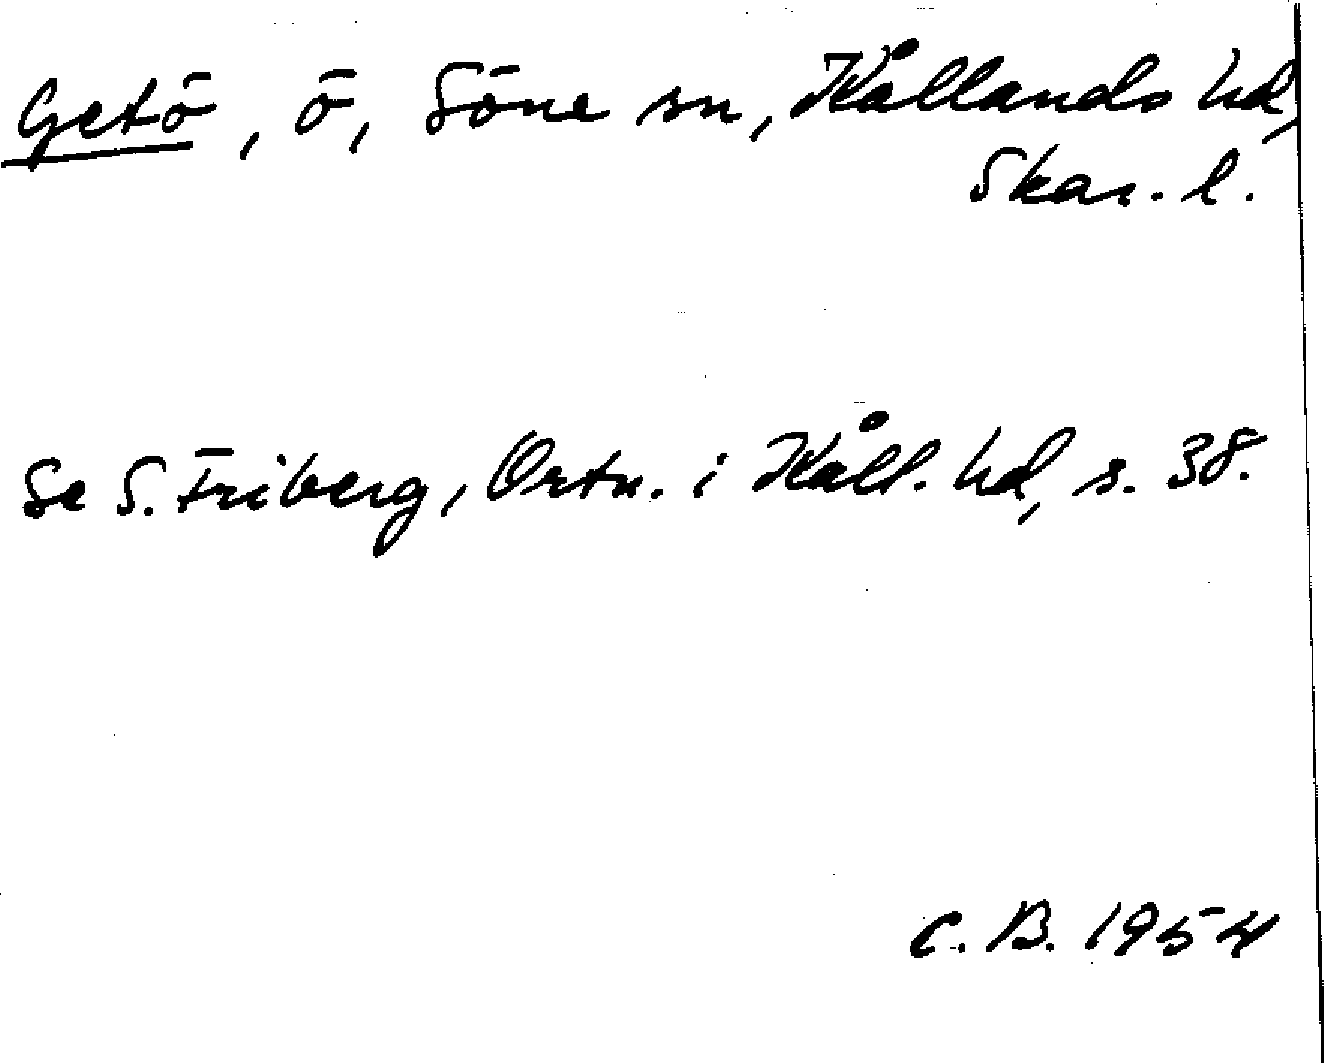 Getö, ö, Söne sn, Kållands hd,
Skar. l.
Se S. Friberg, Ortn. i Kåll. hd, s. 38.
C. B. 1954